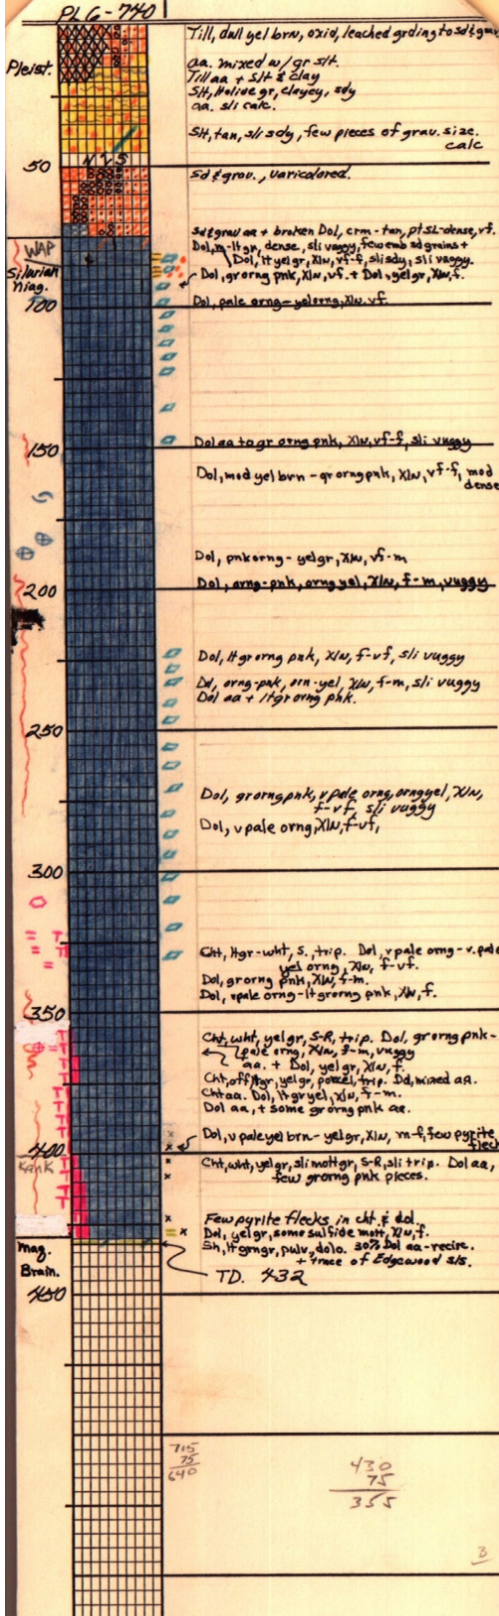 PLG-740
Till, dull yel brn, oxid, leached grding to sd & grav
Pleist.
aa. mixed w/ gr slt.
Till aa + slt & clay
Slt, ltolive gr, clayey, sdy
aa. sli calc.
Slt, tan, sli sdy, few pieces of grav. size.
calc
50
Sd & grav., varicolored.
sd & grav aa + broken Dol, crm-tan, pt SL-dense, vf.
WAP
Dol, m-lt gr, dense, sli vuggy, few emb sd grains +
Dol, lt yel gr, XLN, vf-f, sli sdy, sli vuggy.
Silurian
Niag.
Dol, gr orng pnk, XLN, vf. + Dol, yel gr, XLN, f.
100
Dol, pale orng - yel orng, XLN. vf
150
Dol aa to gr orng pnk, XLN, vf-f, sli vuggy
Dol, mod yel brn - gr orng pnk, XLN, vf-f, mod
dense
Dol, pnk orng - yel gr, XLN, vf-m
200
Dol, orng-pnk, orng yel, XLN, f-m, vuggy
Dol, lt gr orng pnk, XLN, f-vf, sli vuggy
Dol, orng-pnk, orn-yel, XLN, f-m, sli vuggy
Dol aa + lt gr orng pnk.
250
Dol, gr orng pnk, v pale orng, orng yel, XLN,
f-vf, sli vuggy
Dol, v pale orng, XLN, f-vf,
300
Cht, lt gr-wht, S., trip. Dol, v pale orng - v. pale
yel orng, XLN, f-vf.
Dol, gr orng pnk, XLN, f-m.
Dol, v pale orng - lt gr orng pnk, XLN, f.
350
Cht, wht, yel gr, S-R, trip. Dol, gr orng pnk -
pale orng, XLN, f-m, vuggy
aa. + Dol, yel gr, XLN, f.
Cht, off/lt gr, yel gr, porcel, trip. Dol, mixed aa.
Cht aa. Dol, lt gr yel, XLN, f-m.
Dol aa, + some gr orng pnk aa.
400
Dol, v pale yel brn - yel gr, XLN, m-f, few pyrite
flecks
Kank
Cht, wht, yel gr, sli mott gr, S-R, sli trip. Dol aa,
few gr orng pnk pieces.
Few pyrite flecks in cht & dol.
Dol, yel gr, some sulfide mott, XLN, f.
Maq.
Brain.
Sh, lt grn gr, pulv, dolo. 30% Dol aa - recirc.
+ trace of Edgewood sls.
TD. 432
450
715
75
640
430
75
355
3